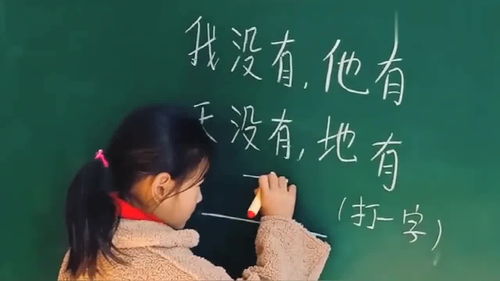 我没有,他有
天没有,地有
(打一字)